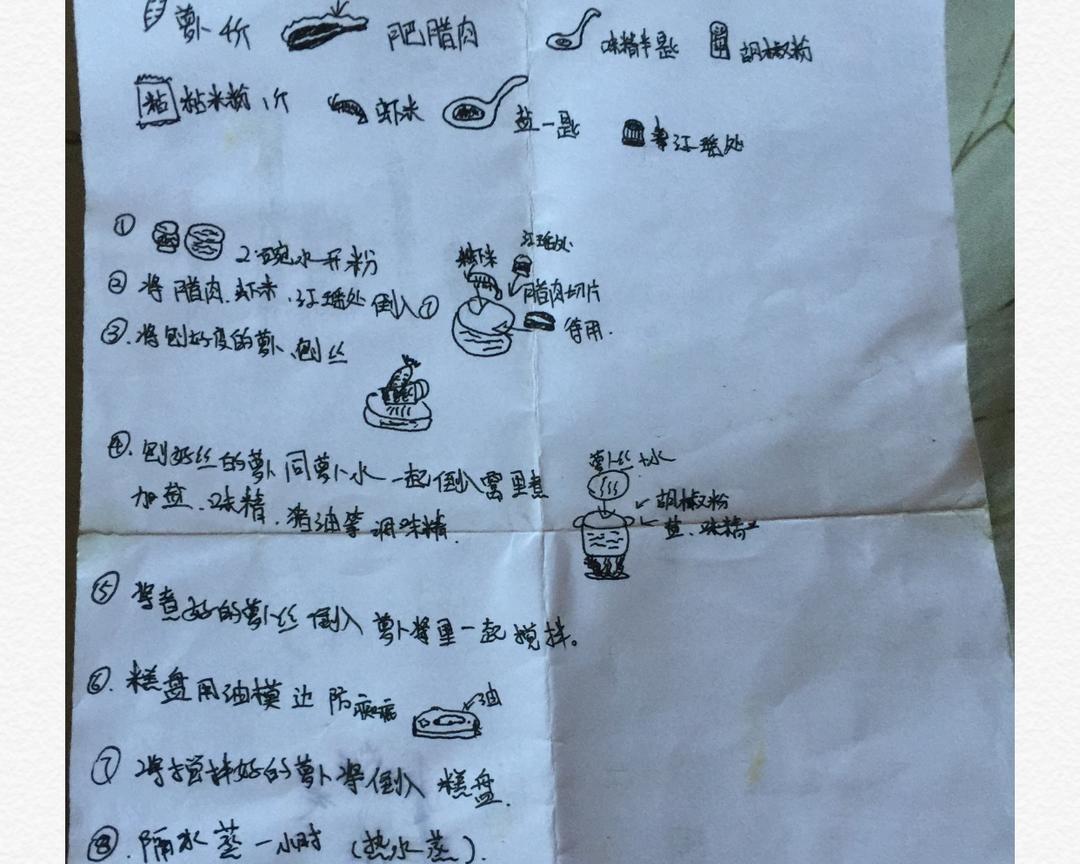 萝卜 斤 肥腊肉 味精半匙 胡椒粉
粘 粘米粉 1斤 虾米 盐一匙 江瑶处
① 2碗水开粉
虾米 江瑶处
② 将腊肉.虾米.江瑶处倒入① 腊肉切片
③.将刨好皮的萝卜刨丝 待用.
④.刨好丝的萝卜同萝卜水一起倒入窝里煮 萝卜丝+水
加盐.味精.猪油等调味精. 胡椒粉
盐.味精
⑤ 将煮好的萝卜丝倒入萝卜浆里一起搅拌。
⑥.糕盘用油模边防 油
⑦ 将搅拌好的萝卜浆倒入糕盘.
⑧.隔水蒸一小时(热水蒸).